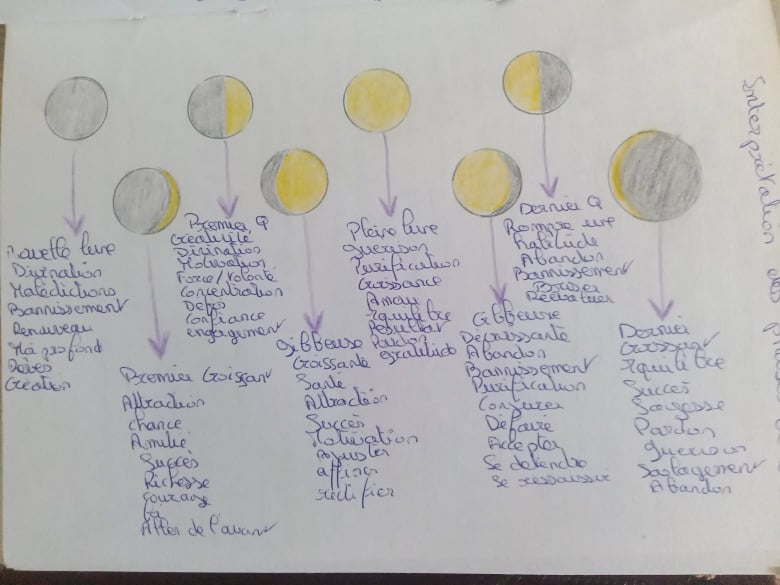 Interprétation des
Nouvelle lune
Divination
Malédictions
Bannissement
Renouveau
profond
Création
Premier Croissant
Attraction
chance
Amitié
Succès
Richesse
courage
Aller de l'avant
Premier Q
Créativité
Divination
Motivation
Force/Volonté
Concentration
Confiance
engagement
Gibbeuse
Croissante
Santé
Attraction
Succès
Motivation
Ajuster
affiner
rectifier
Pleine lune
Guérison
Purification
Croissance
Amour
Equilibre
Résultat
Pardon
gratitude
Gibbeuse
Décroissante
Abandon
Bannissement
Purification
Conjurer
Défaire
Accepter
Se détendre
Dernier Q
Rompre une
habitude
Abandon
Bannissement
Briser
Réévaluer
Dernier
Croissant
Equilibre
Succès
Sagesse
Pardon
guérison
Abandon